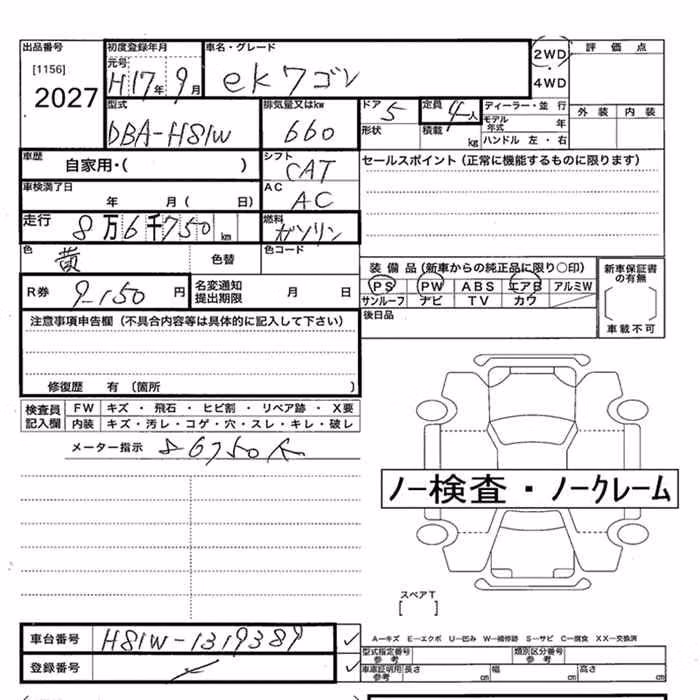 出品番号
[1156]
2027
初度登録年月
元号
H17年9月
車名・グレード
ekワゴン
2WD
・
4WD
評価点
外装 内装
型式
DBA-H81W
排気量又はkw
660
ドア 5
形状
定員 4人
積載 kg
ディーラー・並行
モデル年式 年
ハンドル 左・右
車歴
自家用・( )
シフト
CAT
セールスポイント(正常に機能するものに限ります)
車検満了日
年 月( 日)
AC
AC
走行 8万6千750km
燃料
ガソリン
色
黄
色替
色コード
装備品(新車からの純正品に限り○印)
PS PW ABS エアB アルミW
サンルーフ ナビ TV カワ
新車保証書の有無
[ ]
車載不可
R券 9-150円
名変通知
提出期限
月 日
後日品
注意事項申告欄(不具合内容等は具体的に記入して下さい)
修復歴 有(箇所 )
検査員記入欄
FW キズ・飛石・ヒビ割・リペア跡・X要
内装 キズ・汚レ・コゲ・穴・スレ・キレ・破レ
メーター指示 86750K
ノー検査・ノークレーム
スペアT
[ ]
車台番号 H81W-1319389
登録番号
A―キズ E―エクボ U―凹み W―補修跡 S―サビ C―腐食 XX―交換済
型式指定番号
参考
類別区分番号
参考
車庫証明用
参考
長さ cm 幅 cm 高さ cm